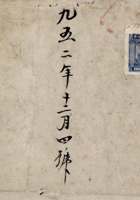 九五二年十二月四號